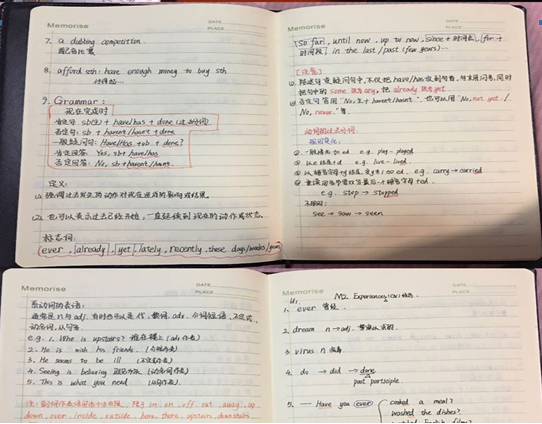 Memorise
DATE
PLACE
7. a dubbing competition
配音比赛
8. afford sth: have enough money to buy sth
9. Grammar:
现在完成时
肯定句: sb(主) + have/has + done (过去分词)
否定句: sb + haven't/hasn't + done
一般疑问句: Have/Has + sb + done?
肯定回答: Yes, sb + have/has
否定回答: No, sb + haven't/hasn't
定义:
(1) 强调过去发生的动作对现在造成的影响或结果。
(2) 也可以表示过去已经开始,一直延续到现在的动作或状态。
标志词:
ever, already, yet, lately, recently, these days/weeks/years
Memorise
DATE
PLACE
So far, until now, up to now, since + 时间点, for + 时间段, in the last/past (few years)...
[注意]
(1) 陈述句变疑问句中,不仅把have/has放到句首,句末用问号,同时
把句中的 some 改为 any, 把 already 改为 yet
"No, 主 + haven't/hasn't", 也可以用 "No, not yet. /
No, never." 等。
动词的过去分词:
规则变化:
① 一般情况 + ed e.g. play - played
② 以e结尾 + d e.g. live - lived
③ 以辅音字母+y结尾, 变y为i + ed. e.g. carry → carried
e.g. stop → stopped
不规则:
see → saw → seen
Memorise
DATE
PLACE
系动词的表语:
e.g. 1. Who is upstairs? 谁在楼上 (adv 作表)
2. He is with his friends. (介短作表)
3. He seems to be ill (不定式作表)
4. Seeing is believing 眼见为实 (动名词作表)
5. This is what you need (从句作表)
in, on, off, out, away, up
down, over, inside, outside, here, there, upstairs, downstairs
Memorise
DATE
PLACE
M2. Experiences (n) 经历
1. ever 曾经
2. dream n → adj.
3. virus n 病毒
4. do → did → done
past participle
5. — Have you ever
cooked a meal?
washed the dishes?
English film?